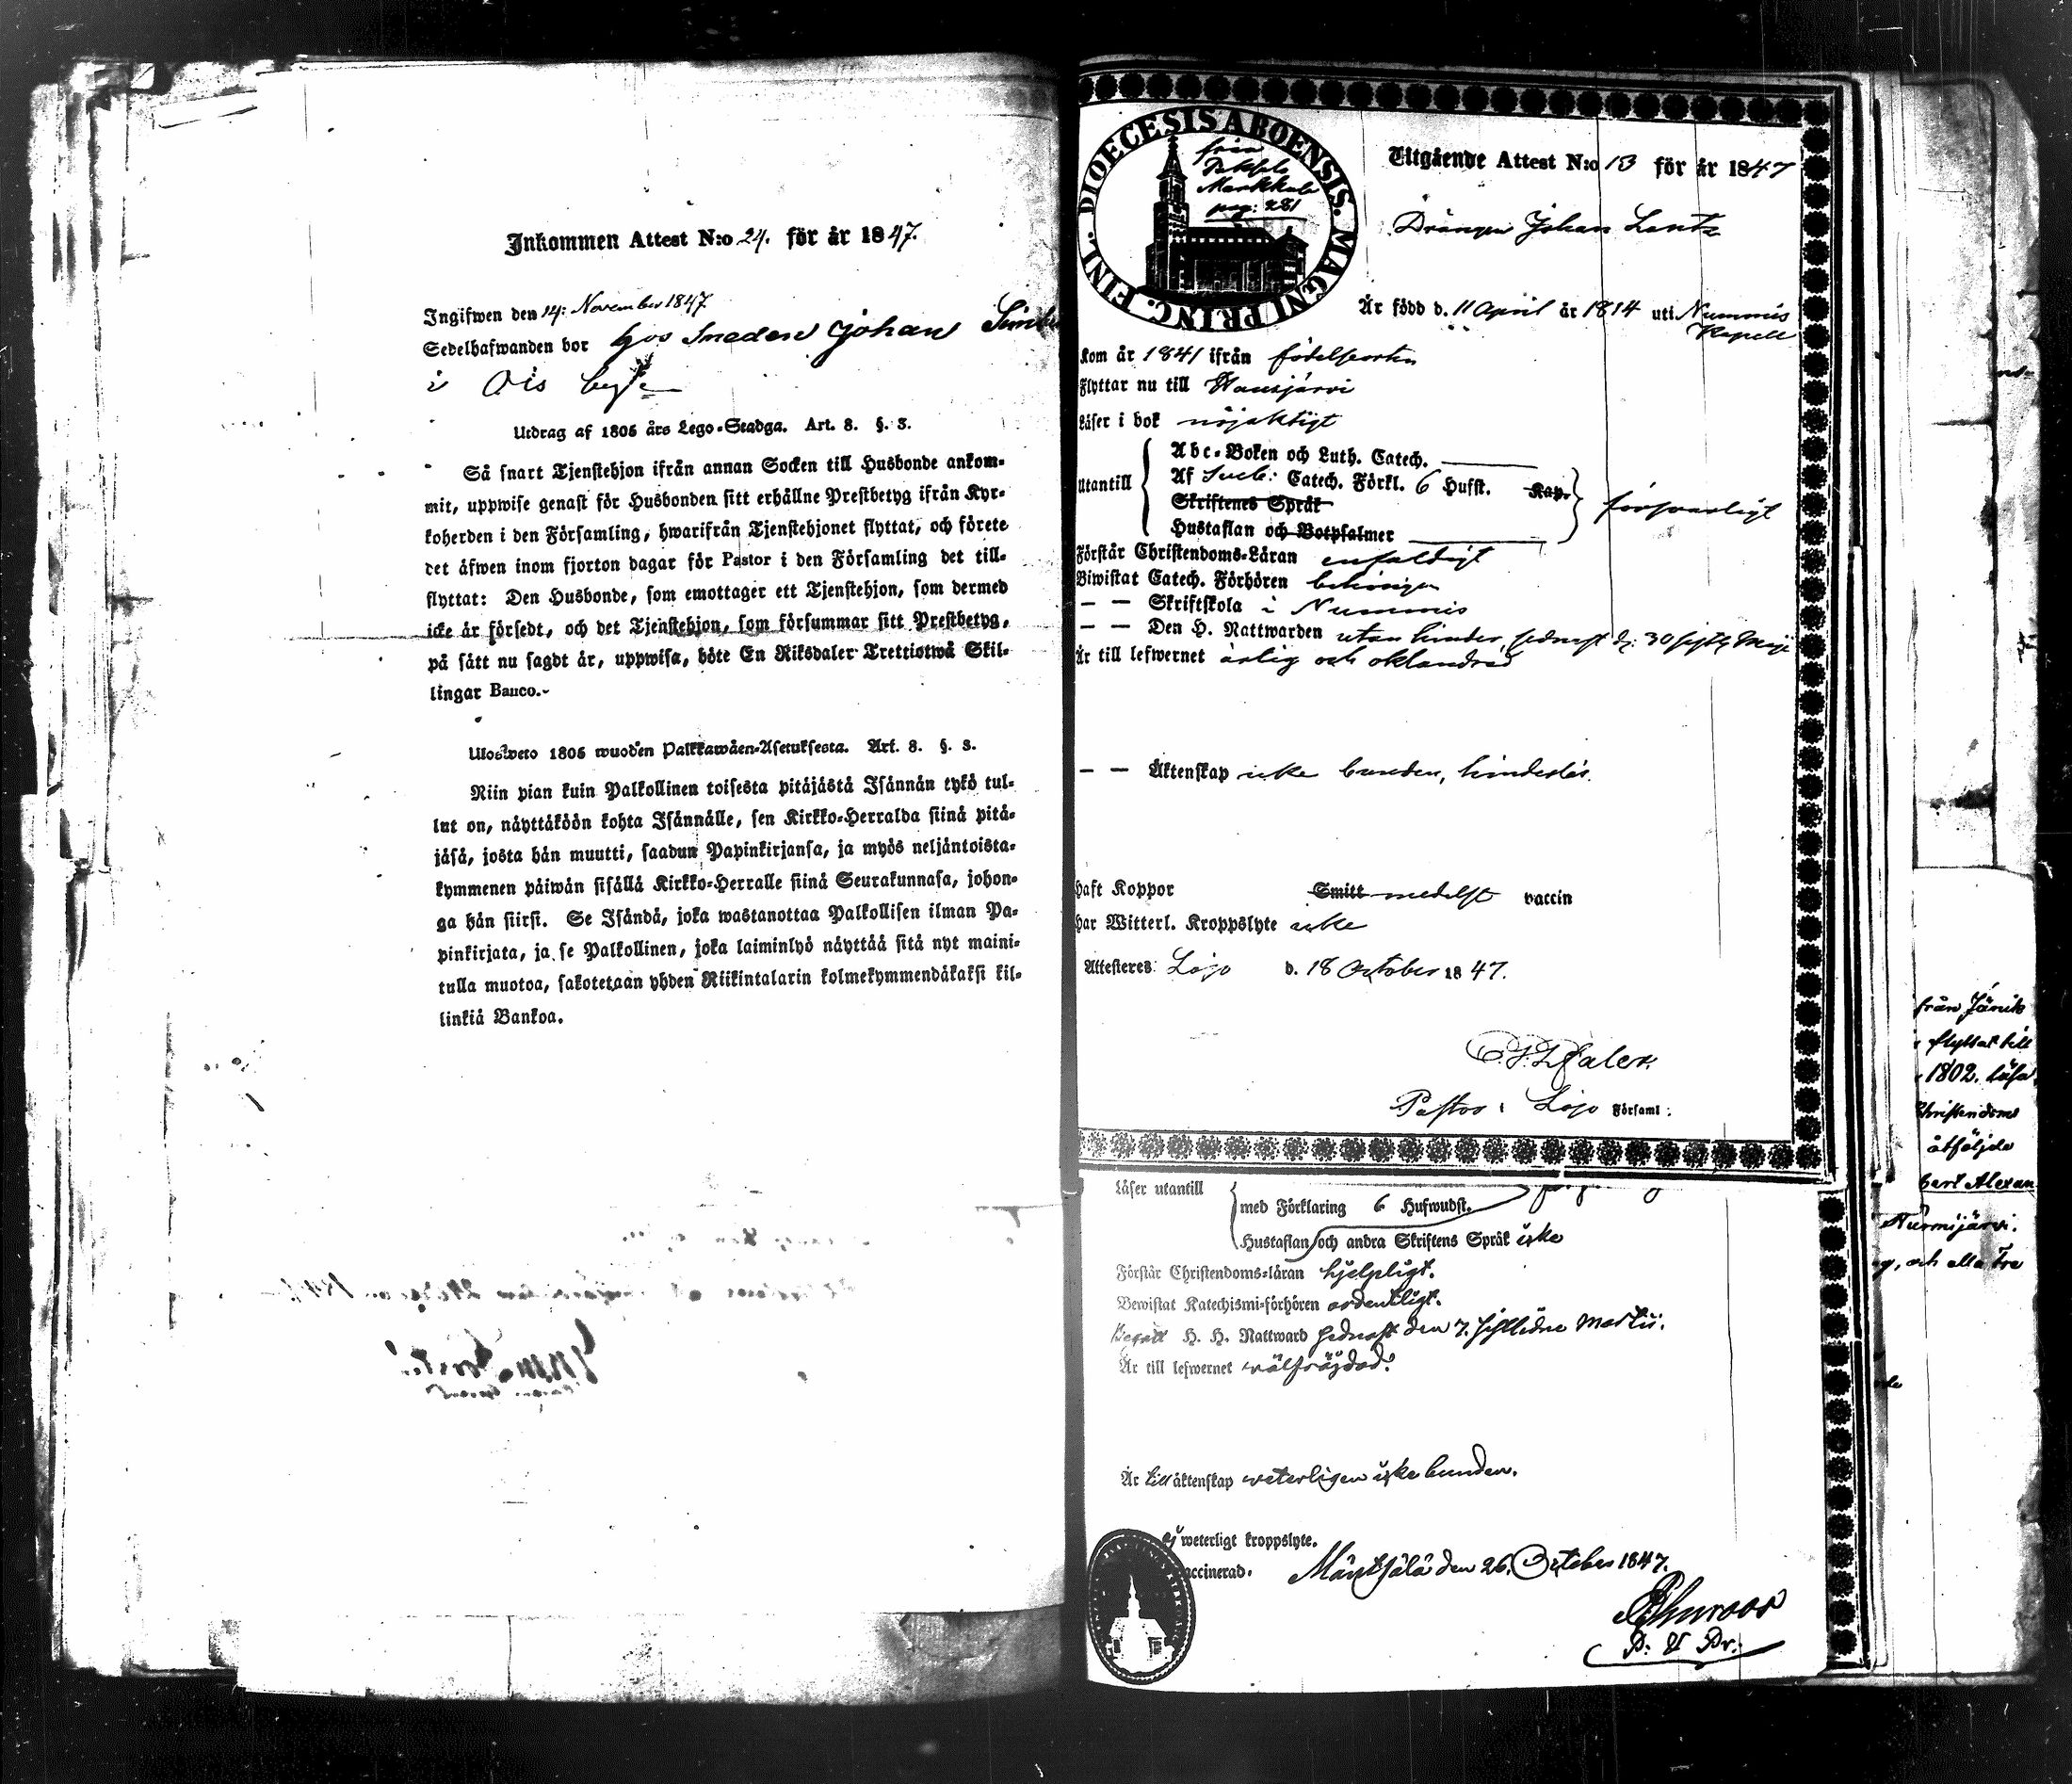 Inkommen Attest N:o 24. för år 1847.
Ingifwen den 14: November 1847
Sedelhafwanden bor hos Smeden Johan
i Ois by
Utdrag af 1805 års Lego-Stadga. Art. 8. §. 3.
Så snart Tjenstehjon ifrån annan Socken till Husbonde ankom-
mit, uppwise genast för Husbonden sitt erhållne Prestbetyg ifrån Kyr-
koherden i den Församling, hwarifrån Tjenstehjonet flyttat, och förete
det äfwen inom fjorton dagar för Pastor i den Församling det till-
flyttat: Den Husbonde, som emottager ett Tjenstehjon, som dermed
icke är försedt, och det Tjenstehjon, som försummar sitt Prestbetyg,
på sätt nu sagdt är, uppwisa, böte En Riksdaler Trettiotwå Skil-
lingar Banco.
Ulosweto 1805 wuoden Palkkawäen-Asetuksesta. Art. 8. §. 3.
Niin pian kuin Palkollinen toisesta pitäjästä Isännän tykö tul-
lut on, näyttäköön kohta Isännälle, sen Kirkko-Herralda siinä pitä-
jäsä, josta hän muutti, saadun Papinkirjansa, ja myös neljäntoista-
kymmenen päiwän sisällä Kirkko-Herralle siinä Seurakunnasa, johon-
ga hän siirsi. Se Isändä, joka wastanottaa Palkollisen ilman Pa-
pinkirjata, ja se Palkollinen, joka laiminlyö näyttää sitä nyt maini-
tulla muotoa, sakotetaan yhden Riikintalarin kolmekymmendäkaksi kil-
linkiä Bankoa.
DIOECESIS ABOENSIS. MAGNI PRINC. FINL.
från
Markkula
pag: 281
Utgående Attest N:o 13 för år 1847
Drängen Johan Lantz
Är född d. 11 April år 1814 uti Nummis
Kapell
Kom år 1841 ifrån födelseorten
Flyttar nu till Hausjärvi
Läser i bok nöjaktigt
Utantill
Abc-Boken och Luth. Catech.
Af Sveb: Catech. Förkl. 6 Hufst. Kap.
Skriftenes Språk
Hustaflan och Botpsalmer
försvarligt
Förstår Christendoms-Läran enfaldigt
Biwistat Catech. Förhören behörigen
— — Skriftskola i Nummis
— — Den H. Nattwarden utan hinder, sednast d: 30 sistl. Maji
Är till lefwernet ärlig och oklandrad
— — Äktenskap icke bunden, hinderlös.
Haft Koppor Smitt medelst vaccin
Har Witterl. Kroppslyte icke
Attesteres: Lojo d. 18 October 1847.
Pastor i Lojo Församl:
Läser utantill
med Förklaring 6 Hufwudst.
Hustaflan och andra Skriftens Språk icke
Förstår Christendoms-läran hjelpligt.
Bewistat Katechismi-förhören ordentligt.
Begått H. H. Nattward sednast den 7. sistlidne Martii.
Är till lefwernet wälfräjdad.
Är till äktenskap weterligen icke bunden.
ej weterligt kroppslyte.
accinerad. Mäntsälä den 26. October 1847.
från
flyttat till
1802. läsa
Christendoms
åtföljde
Nurmijärvi.